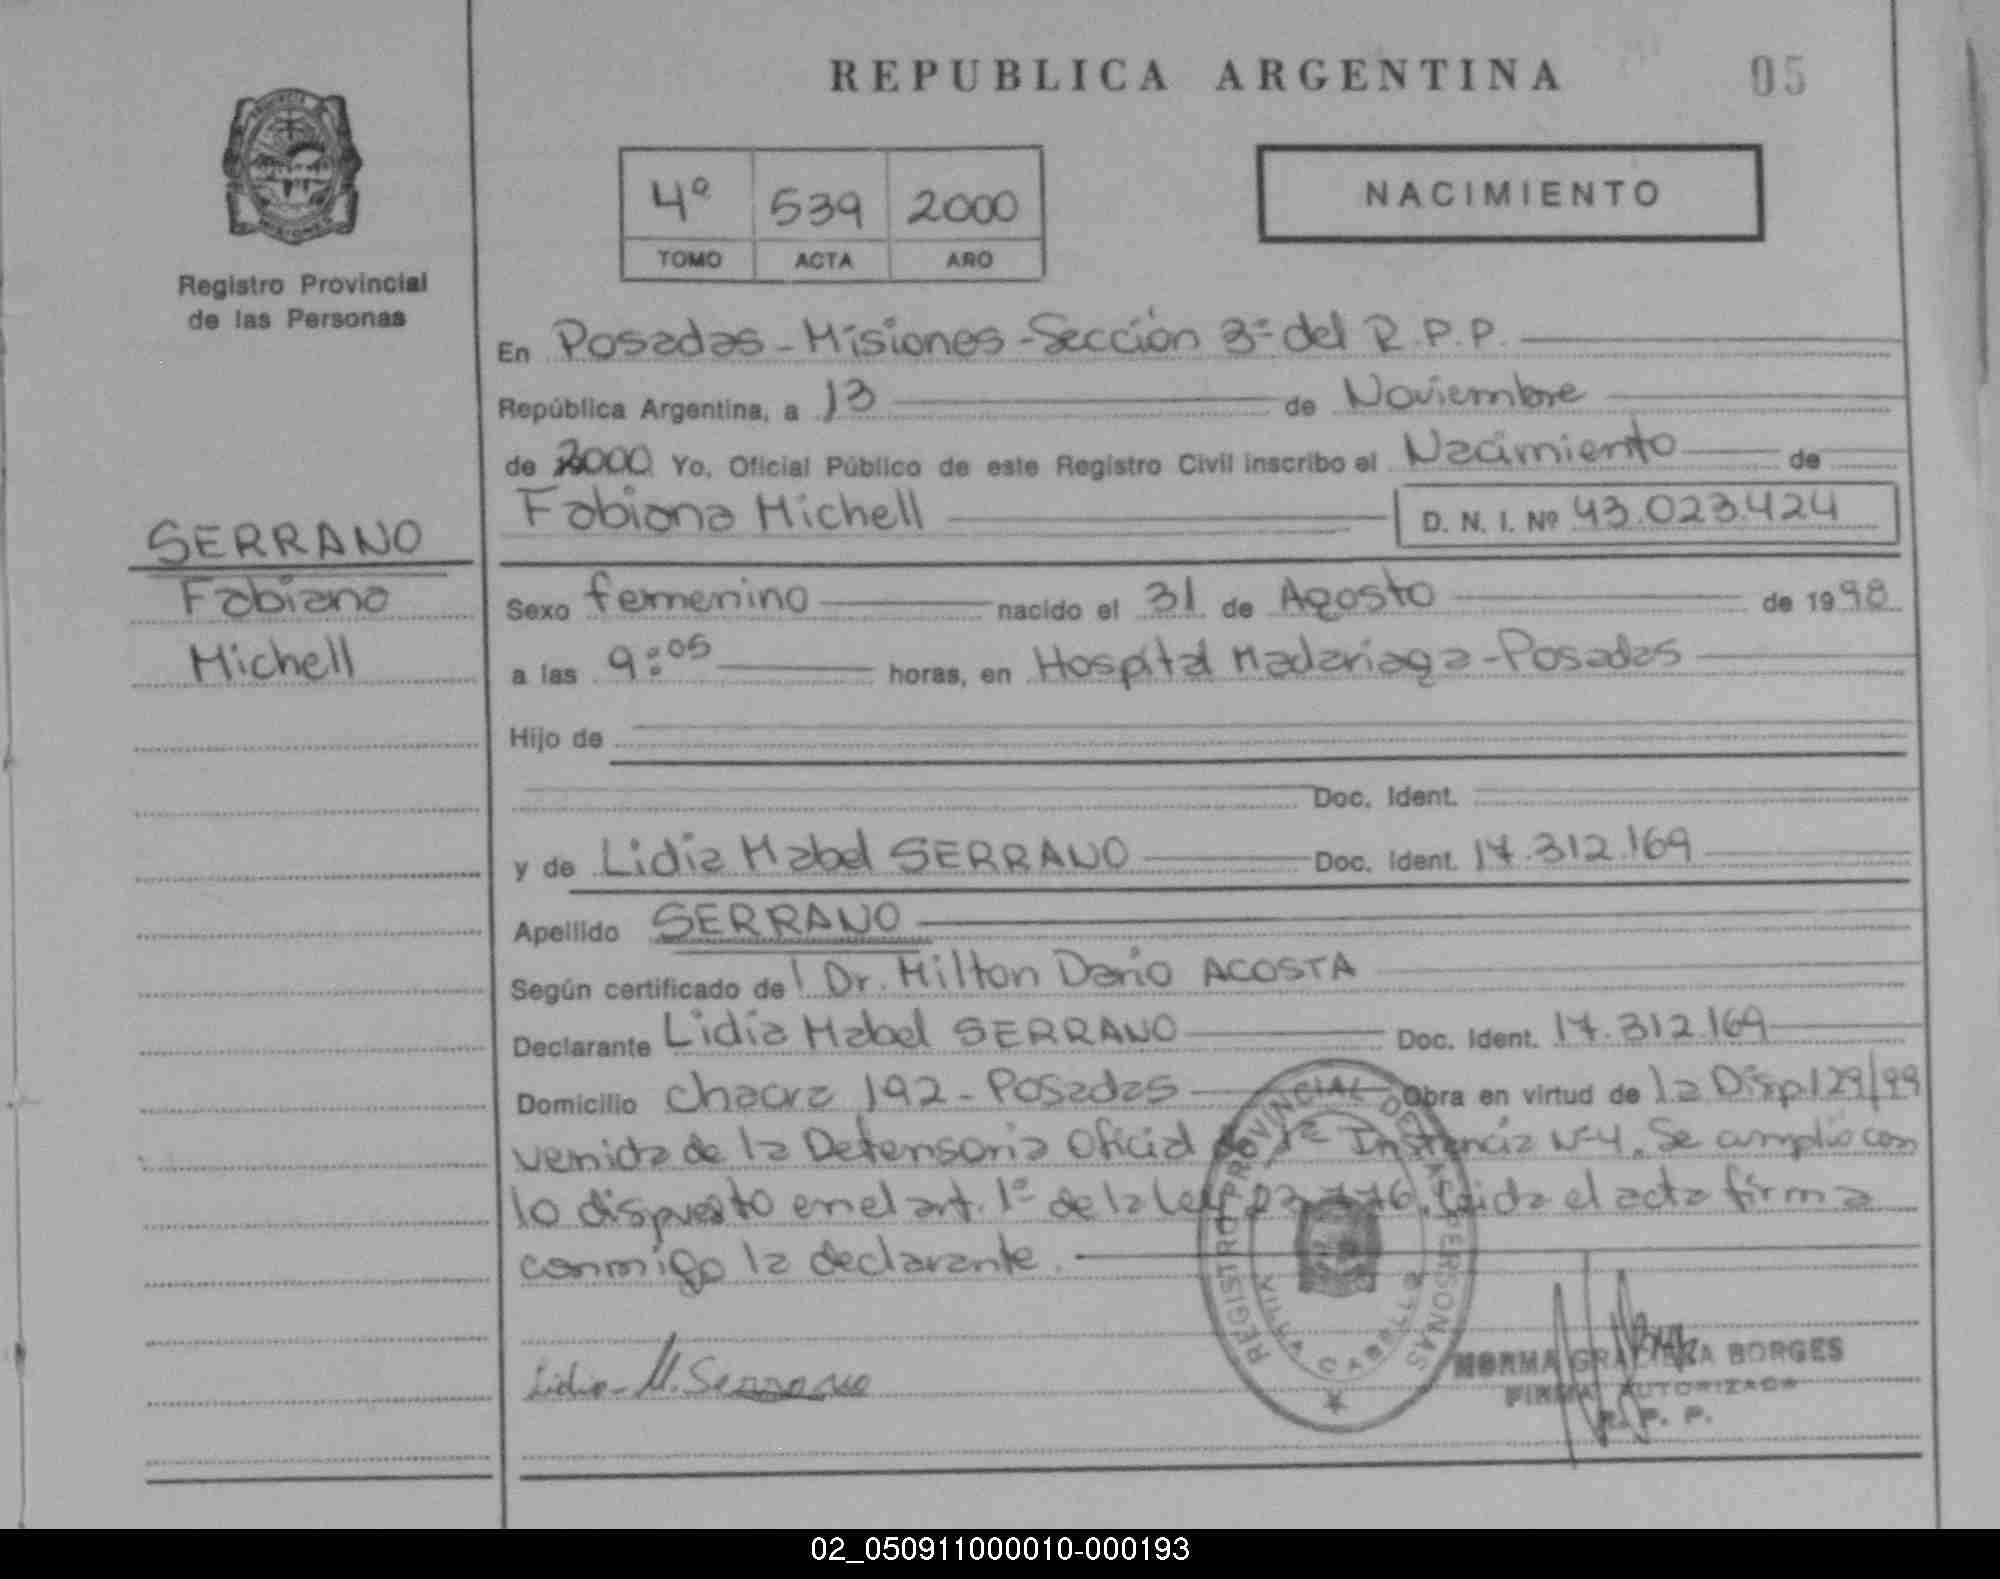 REPUBLICA ARGENTINA
05
4º 539 2000
TOMO ACTA AÑO
NACIMIENTO
Registro Provincial
de las Personas
En Posadas - Misiones - Sección 3ª del R.P.P.
República Argentina, a 13 de Noviembre
de 2000 Yo, Oficial Público de este Registro Civil inscribo el Nacimiento de
Fabiana Michell D. N. I. Nº 43.023.424
SERRANO
Fabiana
Michell
Sexo femenino nacido el 31 de Agosto de 1998
a las 9:05 horas, en Hospital Madariaga - Posadas
Hijo de
Doc. Ident.
y de Lidia Mabel SERRANO Doc. Ident. 17.312.169
Apellido SERRANO
Según certificado de Dr. Milton Dario ACOSTA
Declarante Lidia Mabel SERRANO Doc. Ident. 17.312.169
Domicilio Chacra 192 - Posadas Obra en virtud de la Disp. 129/99
venida de la Defensoria Oficial de 1ª Instancia Nº 4. Se amplió con
lo dispuesto en el art. 1º de la Ley 23.776. Leida el acta firma
conmigo la declarante.
REGISTRO PROVINCIAL DE LAS PERSONAS
Lidia M. Serrano
NORMA GRACIELA BORGES
FIRMA AUTORIZADA
R. P. P.
02_050911000010-000193